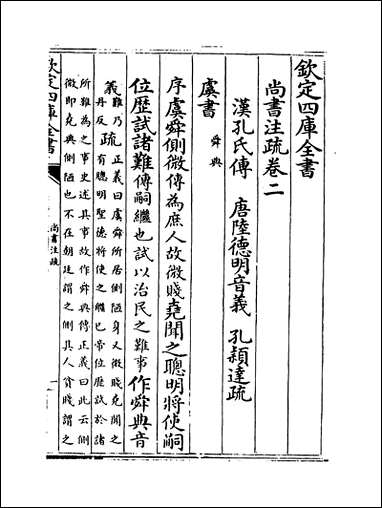 欽定四庫全書
尚書注疏卷二
漢孔氏傳　唐陸德明音義　孔穎達疏
虞書
舜典
序虞舜側微傳為庶人故微賤堯聞之聰明將使嗣
位歷試諸難傳嗣繼也試以治民之難事作舜典音
義難乃
丹反
疏正義曰虞舜所居側陋身又微賤堯聞之
有聰明聖德將使之繼己帝位歷試於諸
所難為之事史述其事故作舜典傳正義曰此云側
微即堯典側陋也不在朝廷謂之側其人貧賤謂之
欽定四庫全書
尚書注疏
一